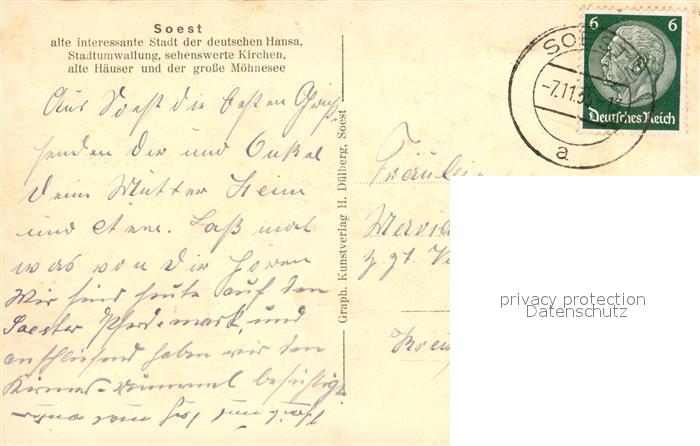 Soest
alte interessante Stadt der deutschen Hansa,
Stadtumwallung, sehenswerte Kirchen,
alte Häuser und der große Möhnesee
Aus Soest die besten Grüße
senden Dir und Onkel
Deine Mutter Heini
und Laß mal
was von Dir hören
Wir sind heute auf den
Soester Pferdemarkt, und
anschließend haben wir den
Kirmes-rummel besichtigt
Graph. Kunstverlag H. Dülberg, Soest
6 6
Deutsches Reich
SOEST
-7.11.3
a
Fräulein
z. Zt.
Kreis
privacy protection
Datenschutz